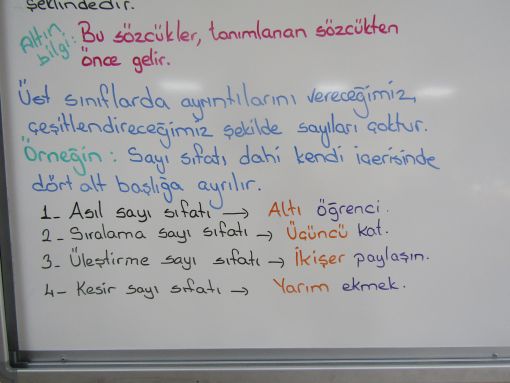 şeklindedir.
Altın bilgi: Bu sözcükler, tanımlanan sözcükten
önce gelir.
Üst sınıflarda ayrıntılarını vereceğimiz,
çeşitlendireceğimiz şekilde sayıları çoktur.
Örneğin: Sayı sıfatı dahi kendi içerisinde
dört alt başlığa ayrılır.
1- Asıl sayı sıfatı → Altı öğrenci.
2- Sıralama sayı sıfatı → Üçüncü kat.
3- Üleştirme sayı sıfatı → İkişer paylaşın.
4- Kesir sayı sıfatı → Yarım ekmek.